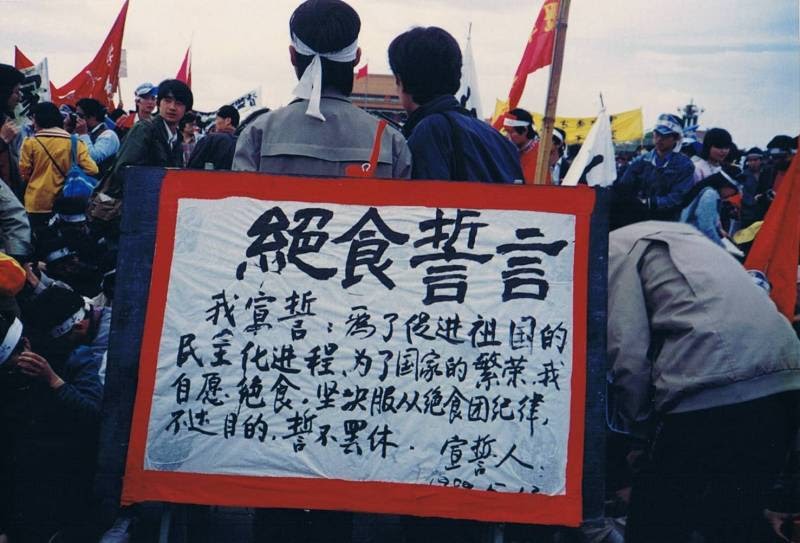 絕食誓言
我宣誓：為了促进祖国的
民主化进程、为了国家的繁荣，我
自愿絕食，坚决服从绝食团纪律，
不达目的，誓不罢休．
宣誓人．